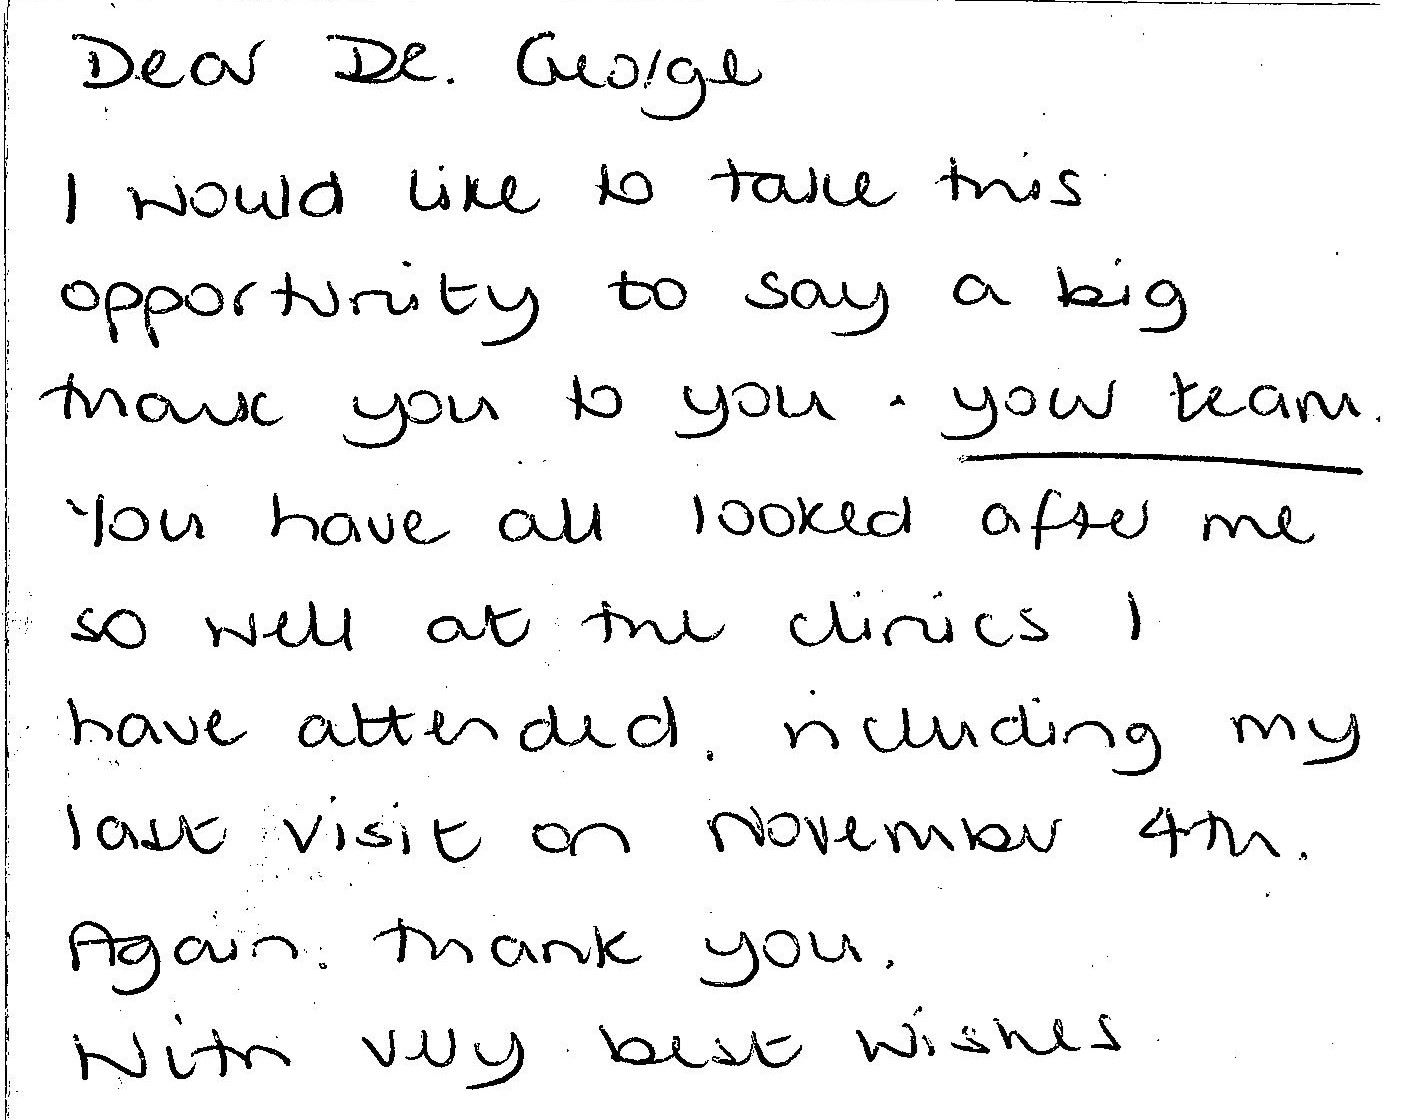 Dear Dr. George
I would like to take this
opportunity to say a big
thank you to you · your team.
You have all looked after me
so well at the clinics I
have attended, including my
last visit on November 4th.
Again, thank you.
With very best wishes